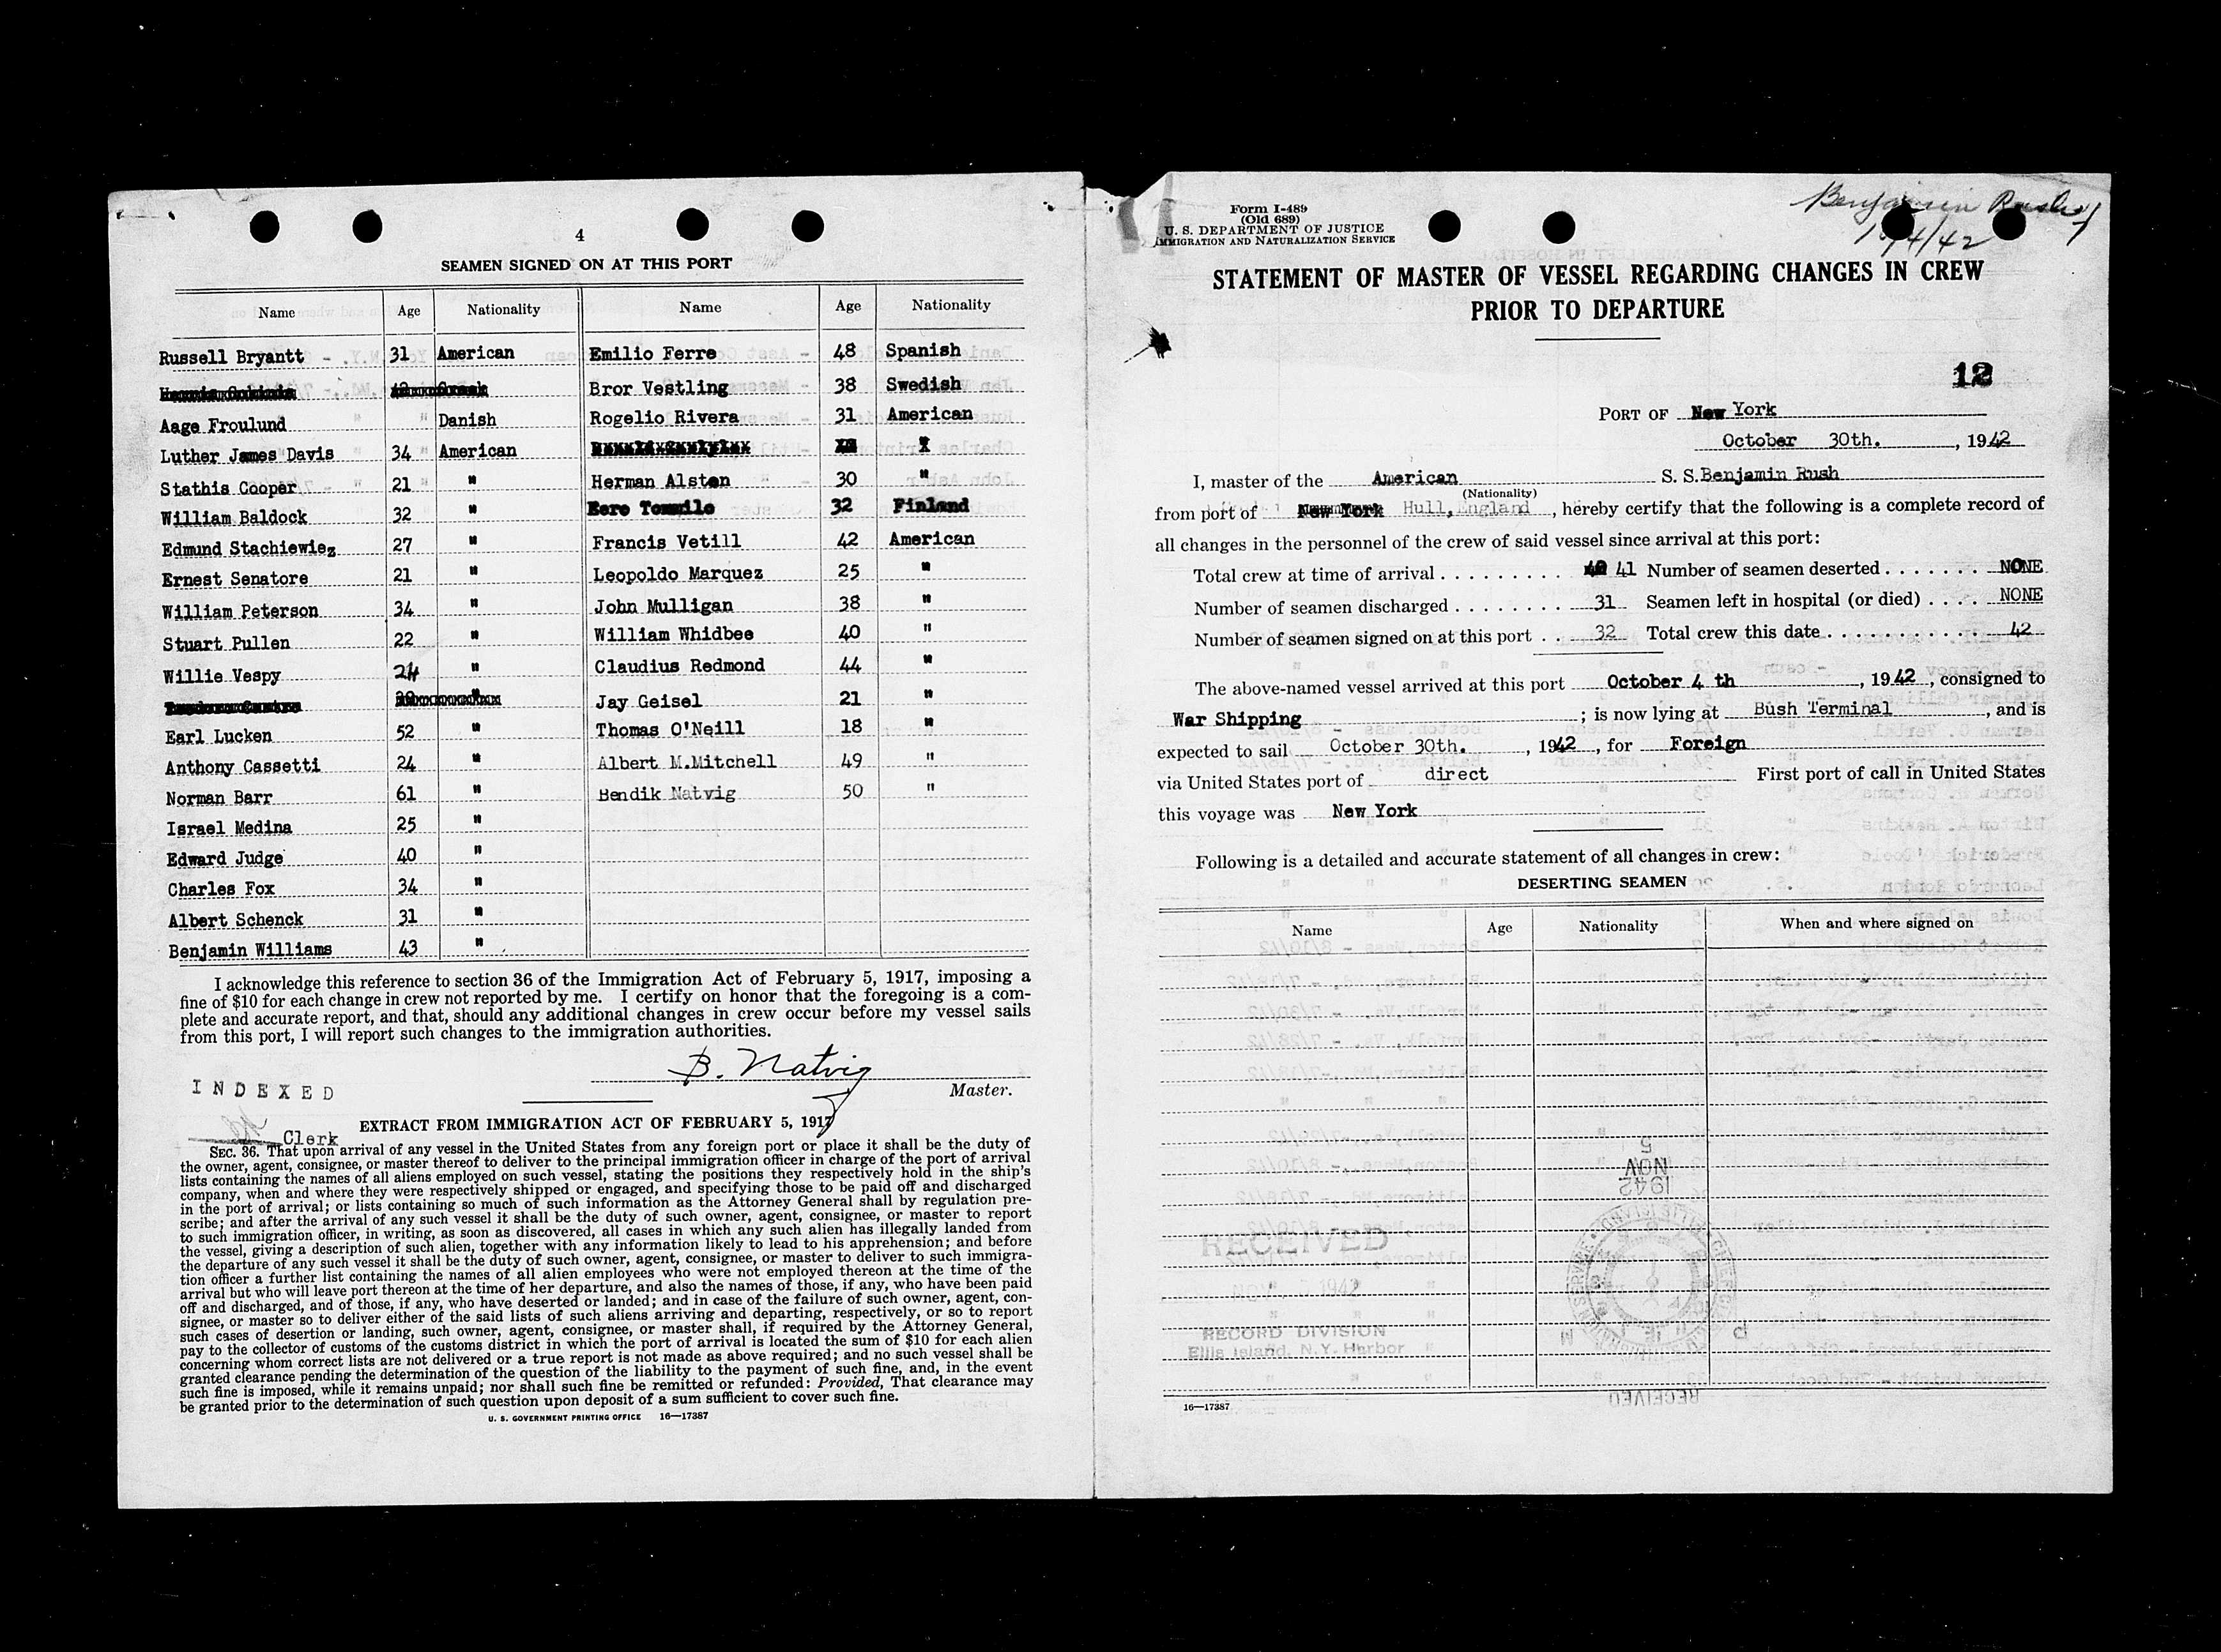 4
SEAMEN SIGNED ON AT THIS PORT
Name Age Nationality Name Age Nationality
Russell Bryantt 31 American Emilio Ferre 48 Spanish
Bror Vestling 38 Swedish
Aage Froulund " Danish Rogelio Rivera 31 American
Luther James Davis 34 " American
Stathis Cooper 21 " Herman Alsten 30 "
William Baldock 32 " Eero Tommilo 32 Finland
Edmund Stachiewiez 27 " Francis Vetill 42 American
Ernest Senatore 21 " Leopoldo Marquez 25 "
William Peterson 34 " John Mulligan 38 "
Stuart Pullen 22 " William Whidbee 40 "
Willie Vespy 24 " Claudius Redmond 44 "
Jay Geisel 21 "
Earl Lucken 52 " Thomas O'Neill 18 "
Anthony Cassetti 24 " Albert M.Mitchell 49 "
Norman Barr 61 " Bendik Natvig 50 "
Israel Medina 25 "
Edward Judge 40 "
Charles Fox 34 "
Albert Schenck 31 "
Benjamin Williams 43 "
I acknowledge this reference to section 36 of the Immigration Act of February 5, 1917, imposing a
fine of $10 for each change in crew not reported by me. I certify on honor that the foregoing is a com-
plete and accurate report, and that, should any additional changes in crew occur before my vessel sails
from this port, I will report such changes to the immigration authorities.
B. Natvig
INDEXED
Master.
EXTRACT FROM IMMIGRATION ACT OF FEBRUARY 5, 1917
Clerk
SEC. 36. That upon arrival of any vessel in the United States from any foreign port or place it shall be the duty of
the owner, agent, consignee, or master thereof to deliver to the principal immigration officer in charge of the port of arrival
lists containing the names of all aliens employed on such vessel, stating the positions they respectively hold in the ship's
company, when and where they were respectively shipped or engaged, and specifying those to be paid off and discharged
in the port of arrival; or lists containing so much of such information as the Attorney General shall by regulation pre-
scribe; and after the arrival of any such vessel it shall be the duty of such owner, agent, consignee, or master to report
to such immigration officer, in writing, as soon as discovered, all cases in which any such alien has illegally landed from
the vessel, giving a description of such alien, together with any information likely to lead to his apprehension; and before
the departure of any such vessel it shall be the duty of such owner, agent, consignee, or master to deliver to such immigra-
tion officer a further list containing the names of all alien employees who were not employed thereon at the time of the
arrival but who will leave port thereon at the time of her departure, and also the names of those, if any, who have been paid
off and discharged, and of those, if any, who have deserted or landed; and in case of the failure of such owner, agent, con-
signee, or master so to deliver either of the said lists of such aliens arriving and departing, respectively, or so to report
such cases of desertion or landing, such owner, agent, consignee, or master shall, if required by the Attorney General,
pay to the collector of customs of the customs district in which the port of arrival is located the sum of $10 for each alien
concerning whom correct lists are not delivered or a true report is not made as above required; and no such vessel shall be
granted clearance pending the determination of the question of the liability to the payment of such fine, and, in the event
such fine is imposed, while it remains unpaid; nor shall such fine be remitted or refunded: Provided, That clearance may
be granted prior to the determination of such question upon deposit of a sum sufficient to cover such fine.
U. S. GOVERNMENT PRINTING OFFICE 16—17387
Form I-489
(Old 689)
U. S. DEPARTMENT OF JUSTICE
IMMIGRATION AND NATURALIZATION SERVICE
Benjamin Rush
10/4/42
STATEMENT OF MASTER OF VESSEL REGARDING CHANGES IN CREW
PRIOR TO DEPARTURE
12
PORT OF New York
October 30th. , 1942
I, master of the American S. S. Benjamin Rush
(Nationality)
from port of New York Hull, England , hereby certify that the following is a complete record of
all changes in the personnel of the crew of said vessel since arrival at this port:
Total crew at time of arrival . . . . . . . . . 41 Number of seamen deserted . . . . . . . NONE
Number of seamen discharged . . . . . . . . 31 Seamen left in hospital (or died) . . . . NONE
Number of seamen signed on at this port . . 32 Total crew this date . . . . . . . . . . . . 42
The above-named vessel arrived at this port October 4 th , 1942 , consigned to
War Shipping ; is now lying at Bush Terminal , and is
expected to sail October 30th. , 1942 , for Foreign
via United States port of direct First port of call in United States
this voyage was New York
Following is a detailed and accurate statement of all changes in crew:
DESERTING SEAMEN
Name Age Nationality When and where signed on
5
NOV
1942
RECEIVED
NOV 1942
RECORD DIVISION
Ellis Island, N.Y. Harbor
RECEIVED
16—17387